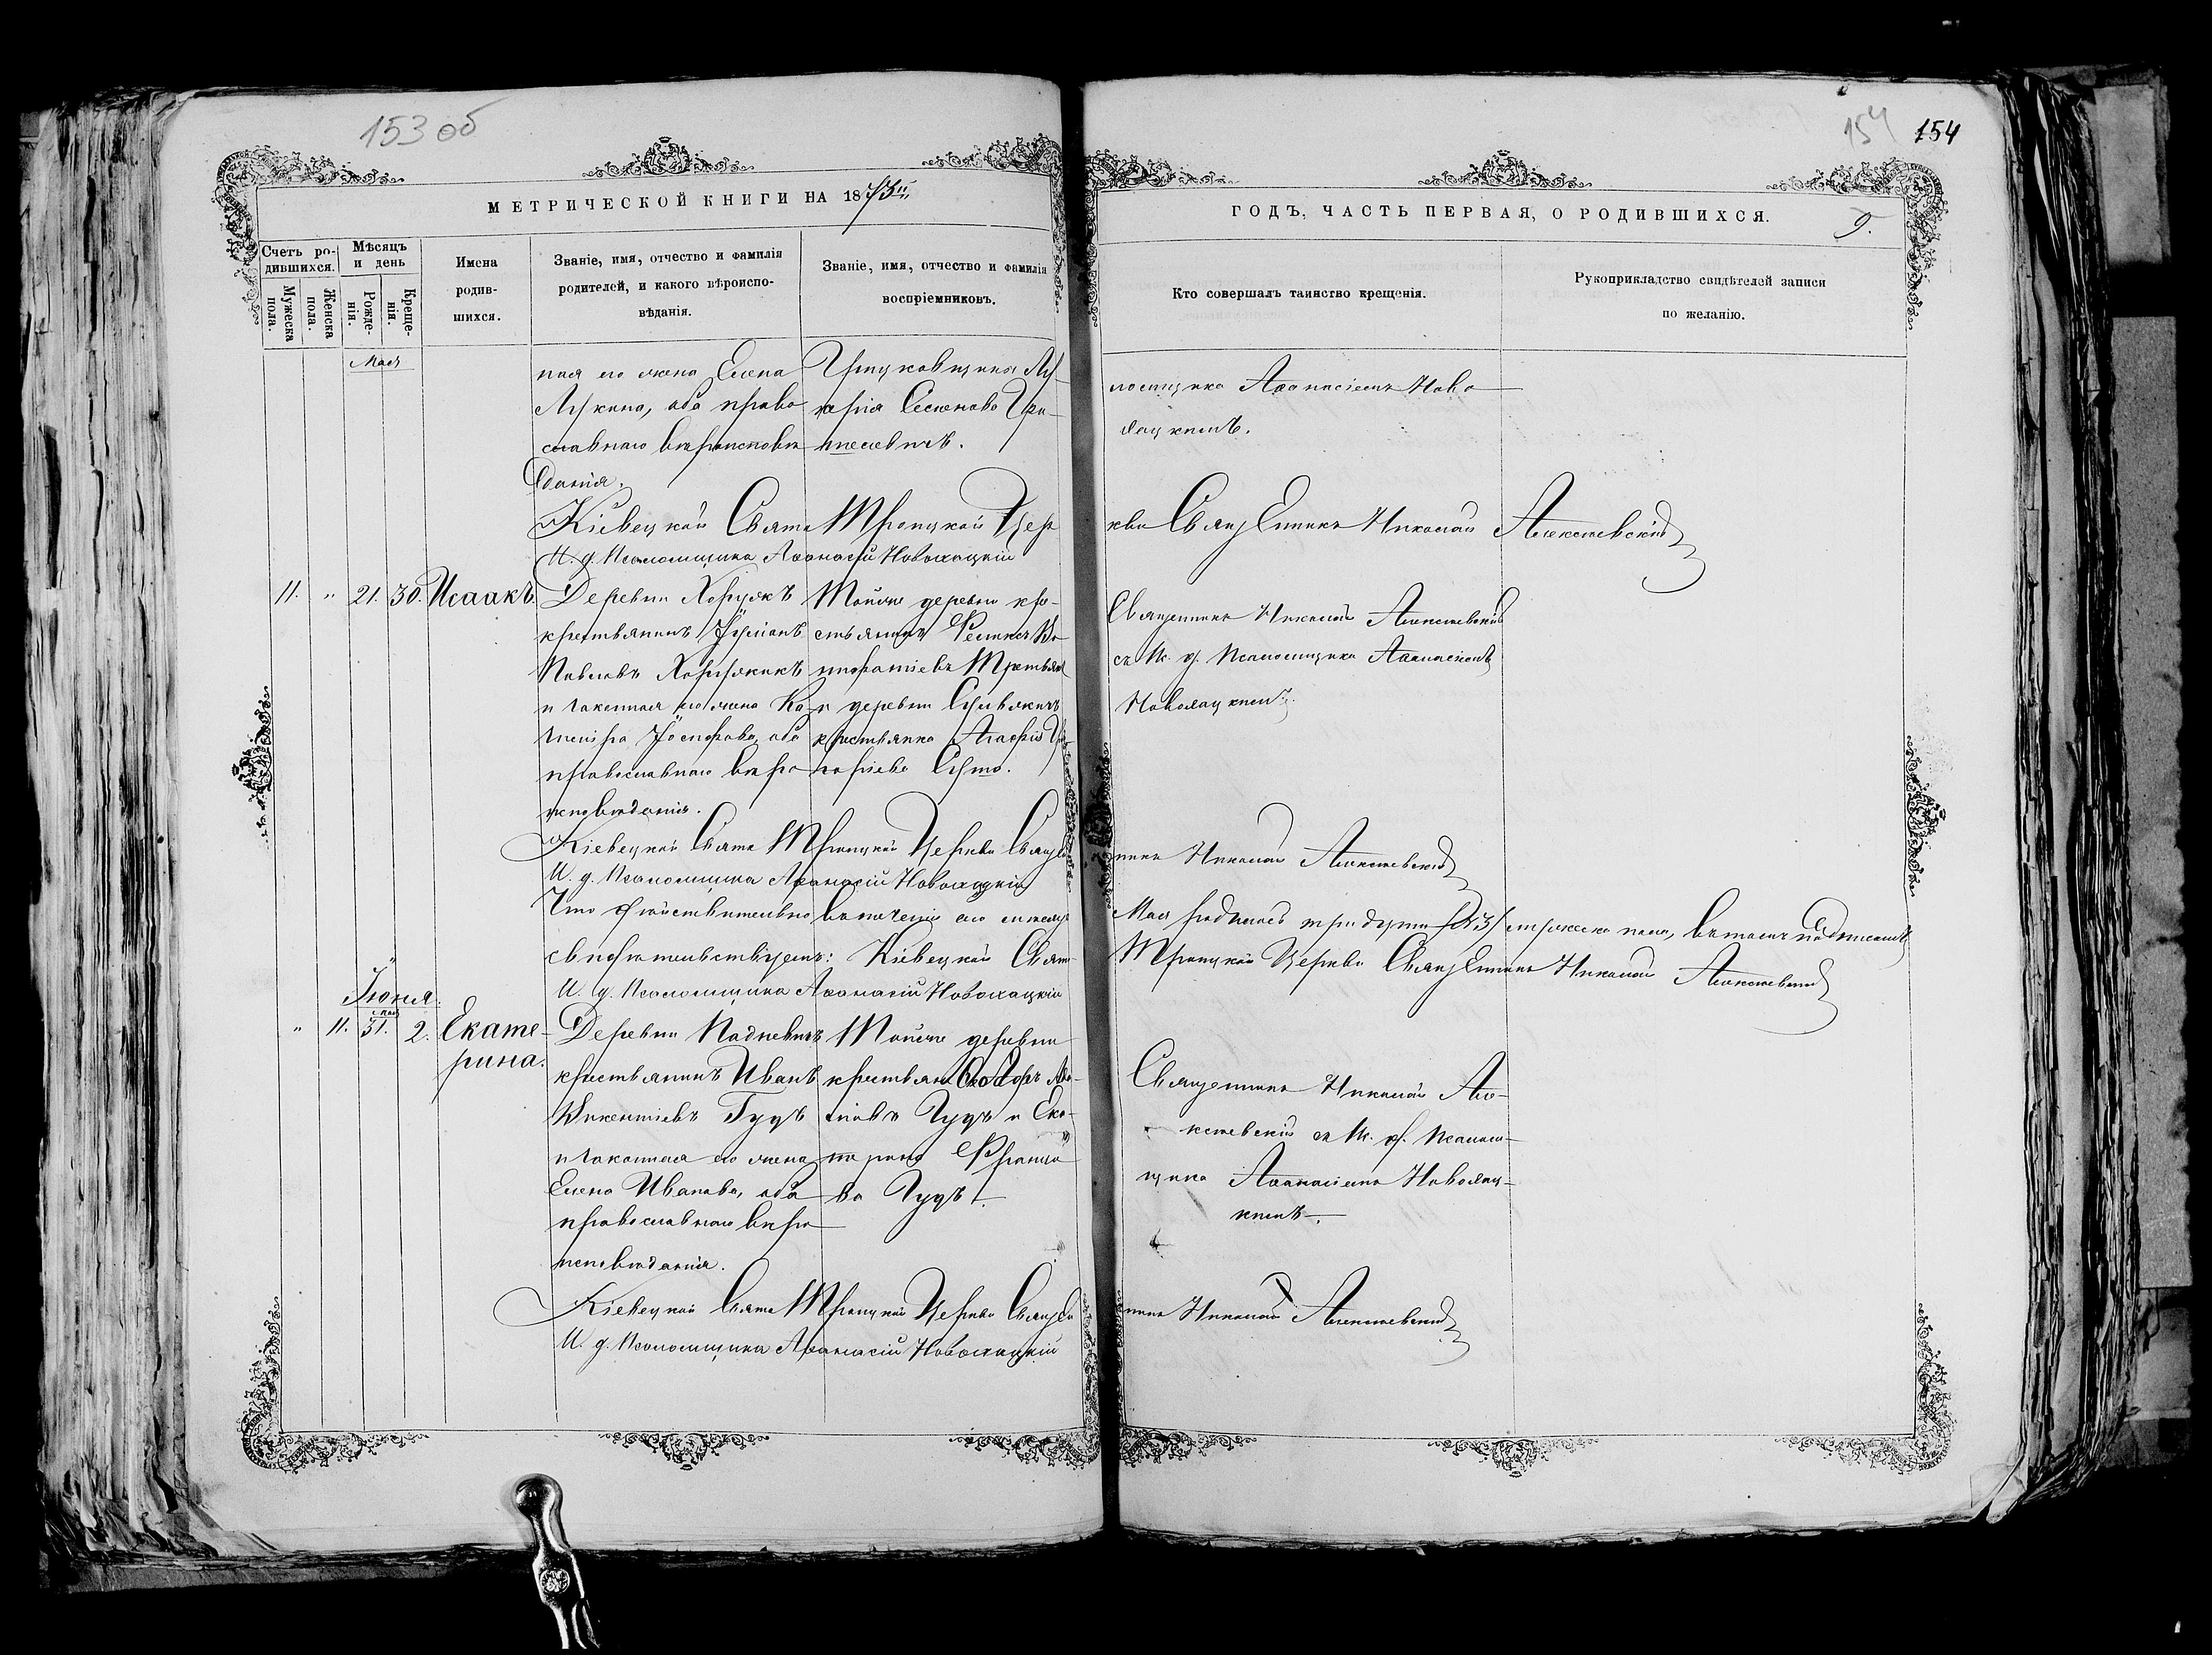 153 об
154 154
МЕТРИЧЕСКОЙ КНИГИ НА 1873
ГОДЪ, ЧАСТЬ ПЕРВАЯ, О РОДИВШИХСЯ.
9.
Счетъ родившихся.
Мужеска пола.
Женска пола.
Мѣсяцъ и день
Рожденія.
Крещенія.
Имена
родив-
шихся.
Званіе, имя, отчество и фамилія
родителей, и какого вѣроиспо-
вѣданія.
Званіе, имя, отчество и фамилія
воспріемниковъ.
Кто совершалъ таинство крещенія.
Рукоприкладство свидѣтелей записи
по желанію.
Мая
ная его жена Елена
Лукина, оба право
славнаго вѣроисповѣ
данія.
Лу-
керія Семенова
ломщика Аѳанасіемъ Ново
Кіевецкой Свято Троицкой Цер
кви Священникъ Николай Алексѣевскій
И. д. Псаломщика Аѳанасій Новохацкій
11. " 21. 30. Исаакъ.
Деревни Хоружъ
крестьянинъ Іуліанъ
Павловъ
и законная его жена Ка-
Іосифова, оба
православнаго вѣро
исповѣданія.
Тойже деревни кре-
стьянинъ
и деревни
крестьянка Агафія Гри-
горіева
Священникъ Николай Алексѣевскій
съ И. д. Псаломщика Аѳанасіемъ
Кіевецкой Свято Троицкой Церкви Священ
никъ Николай Алексѣевскій
И. д. Псаломщика Аѳанасій Новохацкій
Что дѣйствительно въ теченіи сего мѣсяца
Мая родилось три души /3/ мужеска пола, въ томъ подписомъ
свидѣтельствуемъ: Кіевецкой Свято
Троицкой Церкви Священникъ Николай Алексѣевскій
И. д. Псаломщика Аѳанасій Новохацкій
Іюня.
Мая
" 11. 31. 2. Екате-
рина.
Деревни
крестьянинъ Иванъ
Викентіевъ Гудъ
и законная его жена
Елена Иванова, оба
православнаго вѣро
исповѣданія.
Тойже деревни
Гудъ и Ека-
терина Францо
ва Гудъ.
Священникъ Николай Але-
ксѣевскій съ И. д. Псалом-
щика Аѳанасіемъ
Кіевецкой Свято Троицкой Церкви Священ
никъ Николай Алексѣевскій
И. д. Псаломщика Аѳанасій Новохацкій